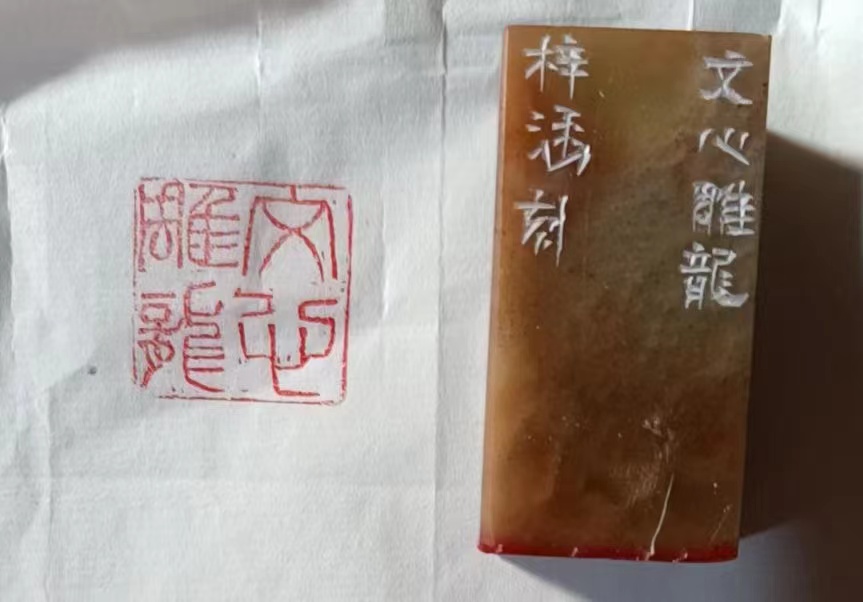 文心
雕龍
文心雕龍
梓涵刻